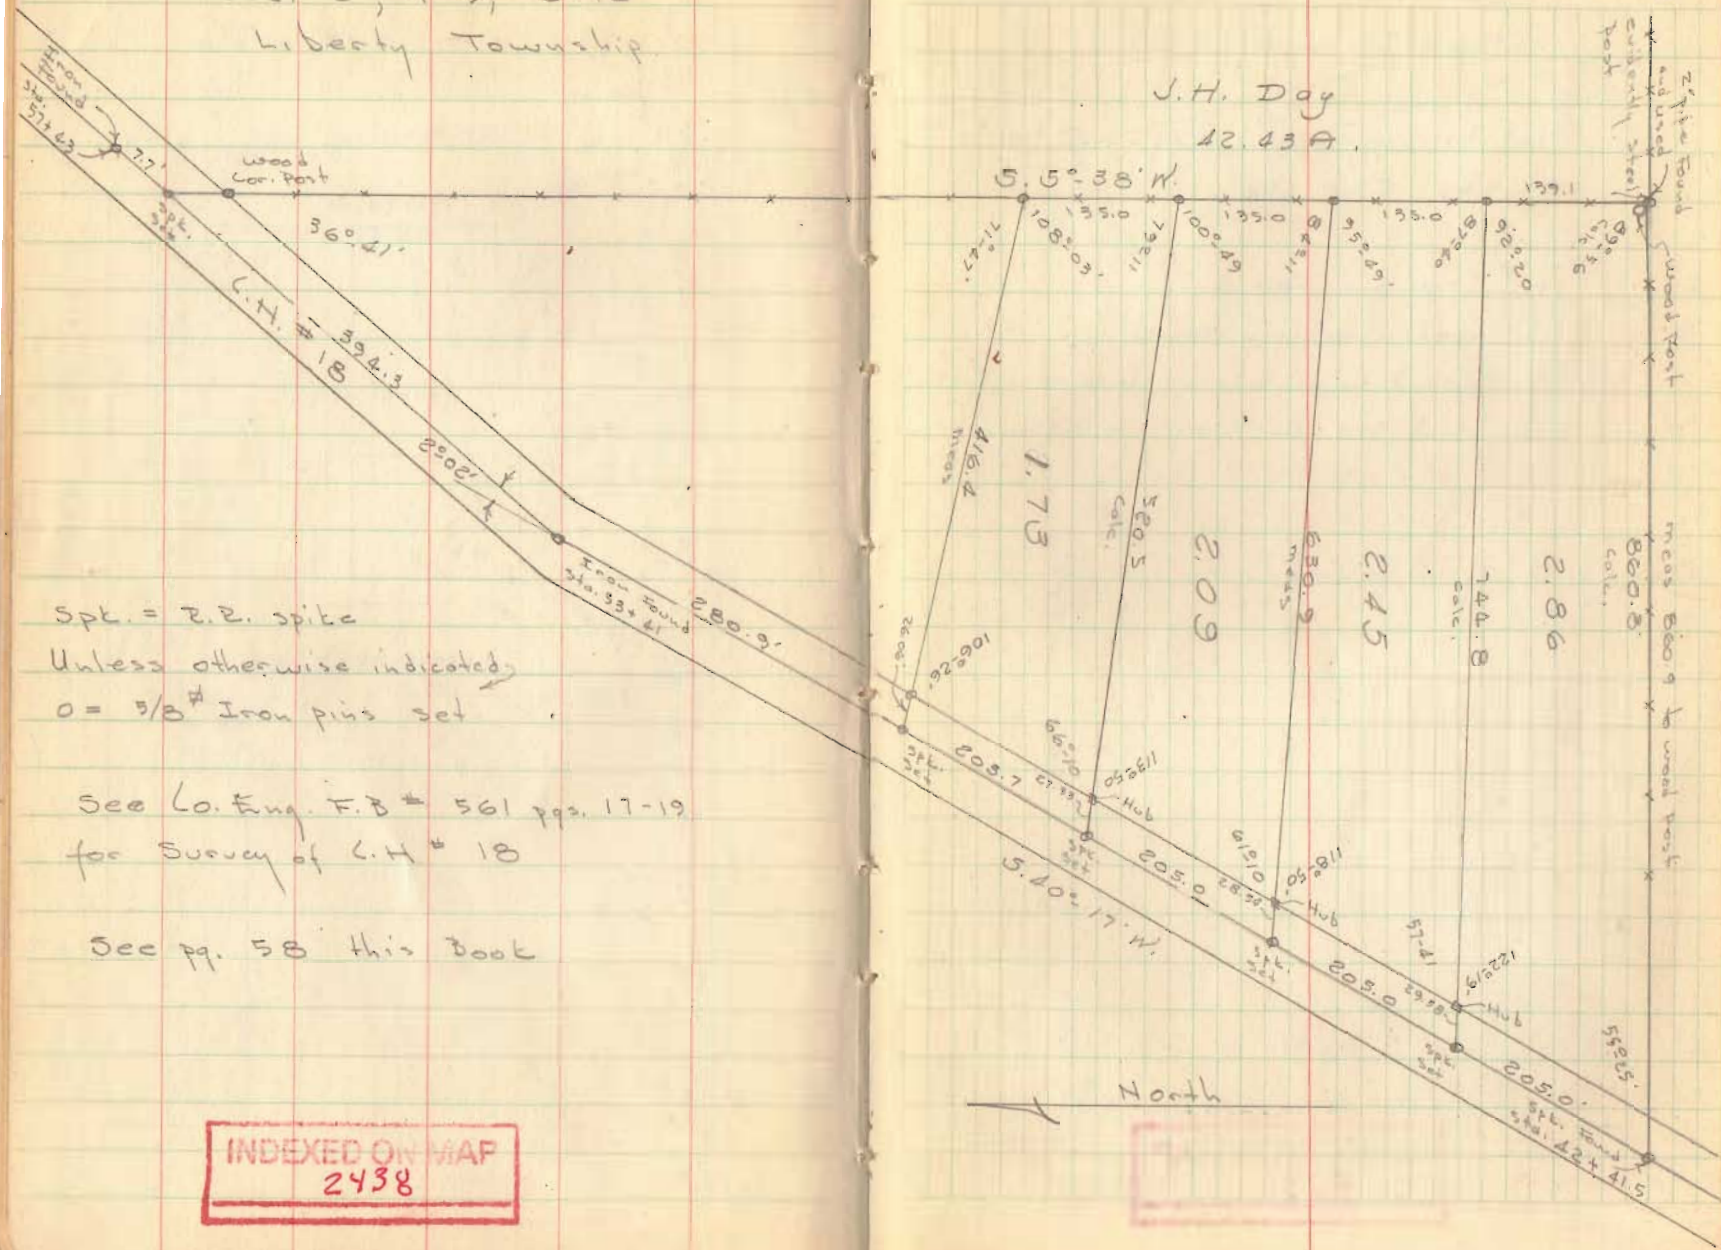 Liberty Township
Iron
Found
Sta.
57+43
7.7'
wood
Cor. Post
Spk.
Set
36°-41'
C.H. # 18
394.3
2°-02'
Iron Found
Sta. 33+41
280.9'
Spk. = R.R. spike
Unless otherwise indicated
o = 5/8" Iron pins set
See Co. Eng. F.B # 561 pgs. 17-19
for Survey of C.H # 18
See pg. 58 this Book
INDEXED ON MAP
2438
J.H. Day
42.43 A.
2" pipe found
and used
evidently steel
post
wood post
S. 5°-38' W.
135.0
135.0
135.0
139.1
71°-47'
108°-03'
79°-11
100°-49
84°-11
95°-49'
87°-40
92°-20
89°-56
Calc
416.4
meas
1.73
520.5
Calc.
2.09
630.9
meas
2.45
744.8
Calc.
2.86
860.8
Calc.
meas 860.9 to wood post
26.08
106°-26'
Spk.
Set
203.7
66°-10
27.33
113°-50
Hub
Spk.
Set
205.0
61°-10
28.54
118°-50'
Hub
Spk.
Set
205.0
57-41
29.58
122°-19'
Hub
Spk.
Set
205.0'
55°-25'
Spk. Found
Sta. 42+41.5
S. 40°-17' W.
North